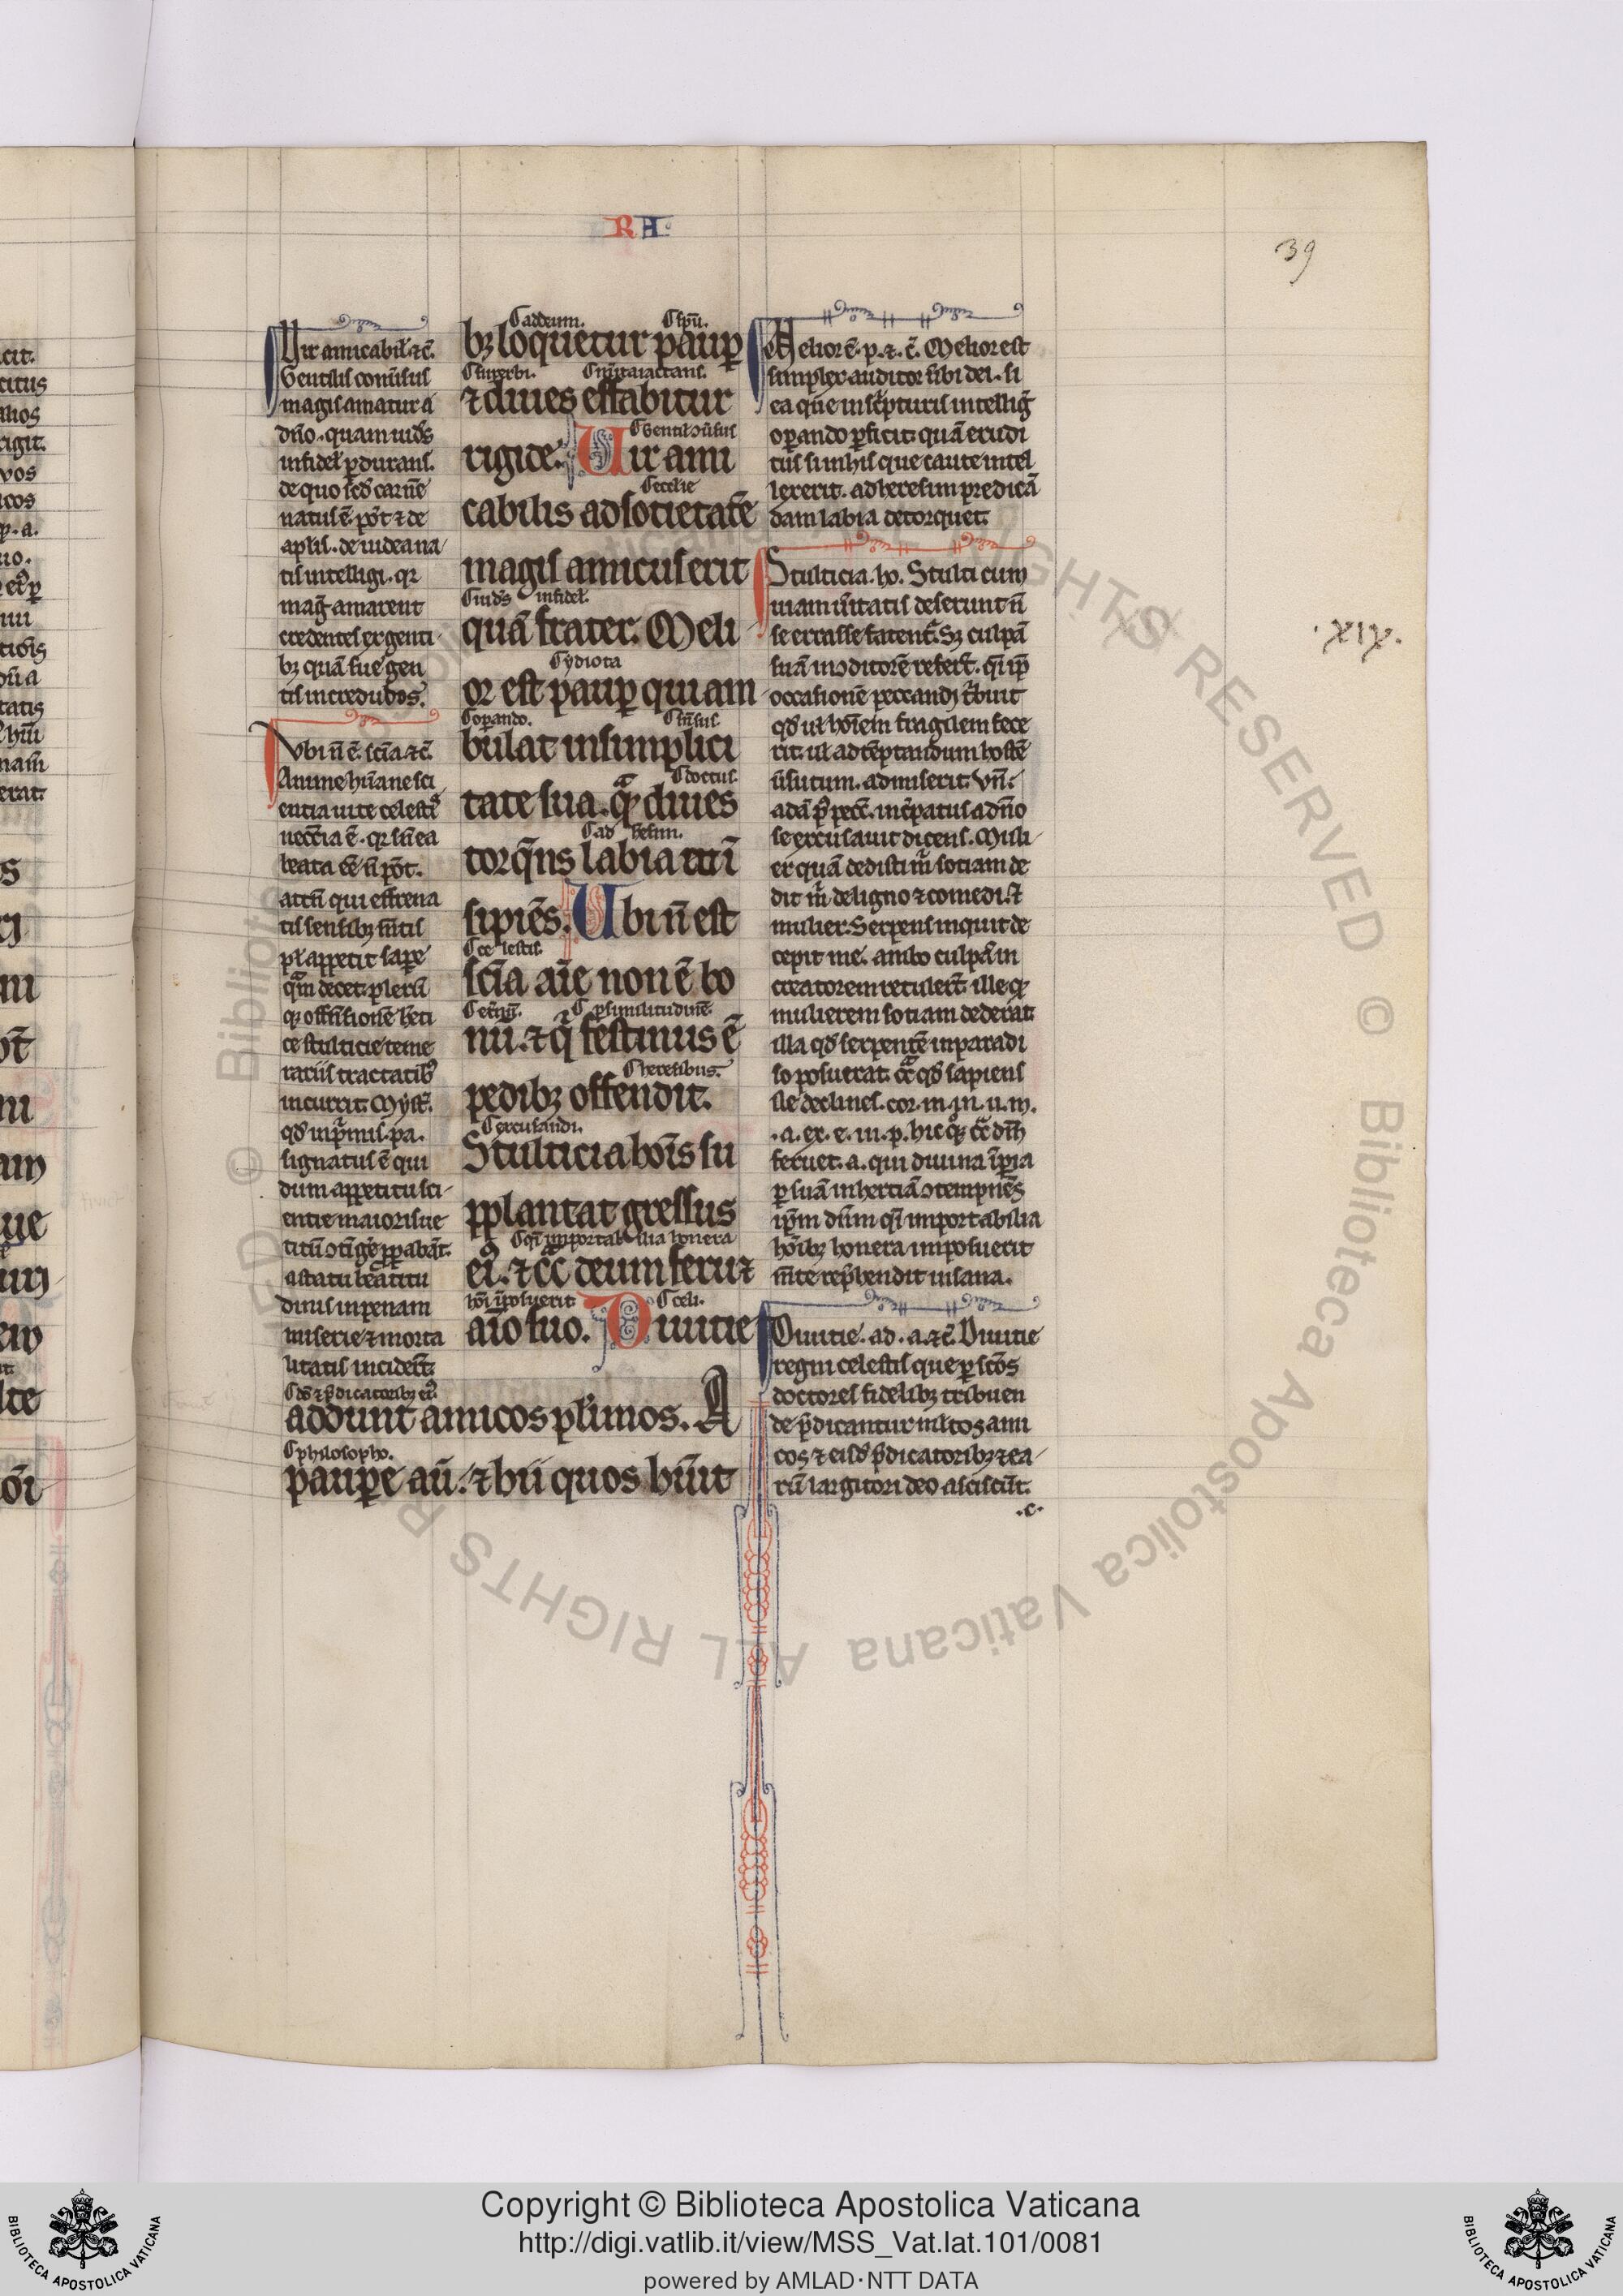 RA.
39
Vir amicabil̄. ⁊c̄.
Gentilis conūsus
magis amatur a
dn̄o. quam iud̄s
infidel̄ ꝑdurans.
de quo sed̄ carnē
natus ē. pōt ⁊ de
aplis. de iudea na
tis intelligi. qr
maḡ amarent
credentes ex genti
bꝫ quā sue gen
tis incredulos.
Vbi n̄ ē. sciā. ⁊c̄
Anime hūane sci
entia uite celestis
necc̄ia ē. qr sn̄ ea
beata eē n̄ pōt.
attn̄ qui effrena
tis sensibꝫ m̄tis
pl̄ appetit saꝑe
qͣm decet. pleru̅
qꝫ offn̄sionē heti
ce stulticie teme
rariis tractatibꝰ
incurrit. Myst̄.
qd̄ in pͥmis. pa.
signatus ē qui
dum appetitu sci
entie maioris ue
titū ꝯtiḡe ꝓꝑabāt.
a statu beatitu
dinis in penam
miserie ⁊ morta
litatis incider̄t.
ad deum. sp̄u.
bꝫ loquetur pauꝑ
superbi. cōmīta iactans.
⁊ diues effabitur
Gentil̄ ꝯūsus
rigide. Vir ami
eccl̄ie
cabilis ad societatē
magis amicus erit
iud̄s infidel̄.
quā frater. Meli
ydiota
or est pauꝑ qui am
oꝑando. sn̄sus
bulat in simplici
doctus.
tate sua. qͣꝫ diues
ad hesim.
torqn̄s labia ⁊ ti
sipiēs. Vbi n̄ est
celestis.
sciā aīe non ē bo
et̄n̄ū. ꝑ similitudinē
nū. ⁊ q̇ festinus ē
heresibus.
pedibꝫ offendit.
excusandi.
Stulticia hoīs su
pplantat gressus
qͥ importabilia honera
eiꝰ. ⁊ cͣ deum feruꝫ
hoī īposuerit celi.
aīo suo. Diuitie
ds̄ ⁊ p̄dicatoribꝫ eiꝰ.
addunt amicos pl̄imos. A
philosopho.
pauꝑe aū. ⁊ hii quos hūit
Melior ē. p. ⁊. c̄. Melior est
simplex auditor ūbi dei. si
ea que in scͥpturis intelligͥ
oꝑando ꝑficit. quā erudi
tus. si in his que caute intel
lexerit. ad heresim predicā
dam labia detorquet.
Stulticia. ho. Stulti cum
uiam ūitatis deserunt n̄
se errasse fatent̄. Sꝫ culpā
suā in ꝯditorē refer̄t. qͥ ip̄
occasionē peccandi tͥbuit
qd̄ ul̄ hoīem fragilem fece
rit. ul̄ ad tēptandum hostē
ūsutum. admiserit. Vn̄.
adā pꝰ pecc̄. incͬpatus a dn̄o
se excusauit dicens. Muli
er quā dedisti mͥ sotiam de
dit mͥ de ligno ⁊ comedi. ⁊
mulier. Serpens inquit de
cepit me. ambo culpā in
creatorem retuler̄t. ille qꝫ
mulierem sotiam dederat
illa qd̄ serpentē in paradi
so posuerat. cͣ qd̄ sapiens
ille declines. cor. m. in. u. m.
.a. ex. e. in. p. hic qꝫ cͣ dm̄
feruet. a. qui diuina īꝑia
ꝑ suā inhertiā ꝯtempnēs
ip̄m dn̄m qͥ importabilia
hoībꝫ honera imposuerit
m̄te rep̄hendit insana.
Diuitie. ad. a. ⁊c̄. Diuitie
regni celestis que ꝑ scōs
doctores fidelibꝫ tribuen
de p̄dicantur ml̄tos ami
cos ⁊ eisd̄ p̄dicatoribꝫ ⁊ ea
rū largitori deo asciscūt.
.c.
.xix.
Copyright © Biblioteca Apostolica Vaticana
http://digi.vatlib.it/view/MSS_Vat.lat.101/0081
powered by AMLAD·NTT DATA
BIBLIOTECA APOSTOLICA VATICANA
BIBLIOTECA APOSTOLICA VATICANA